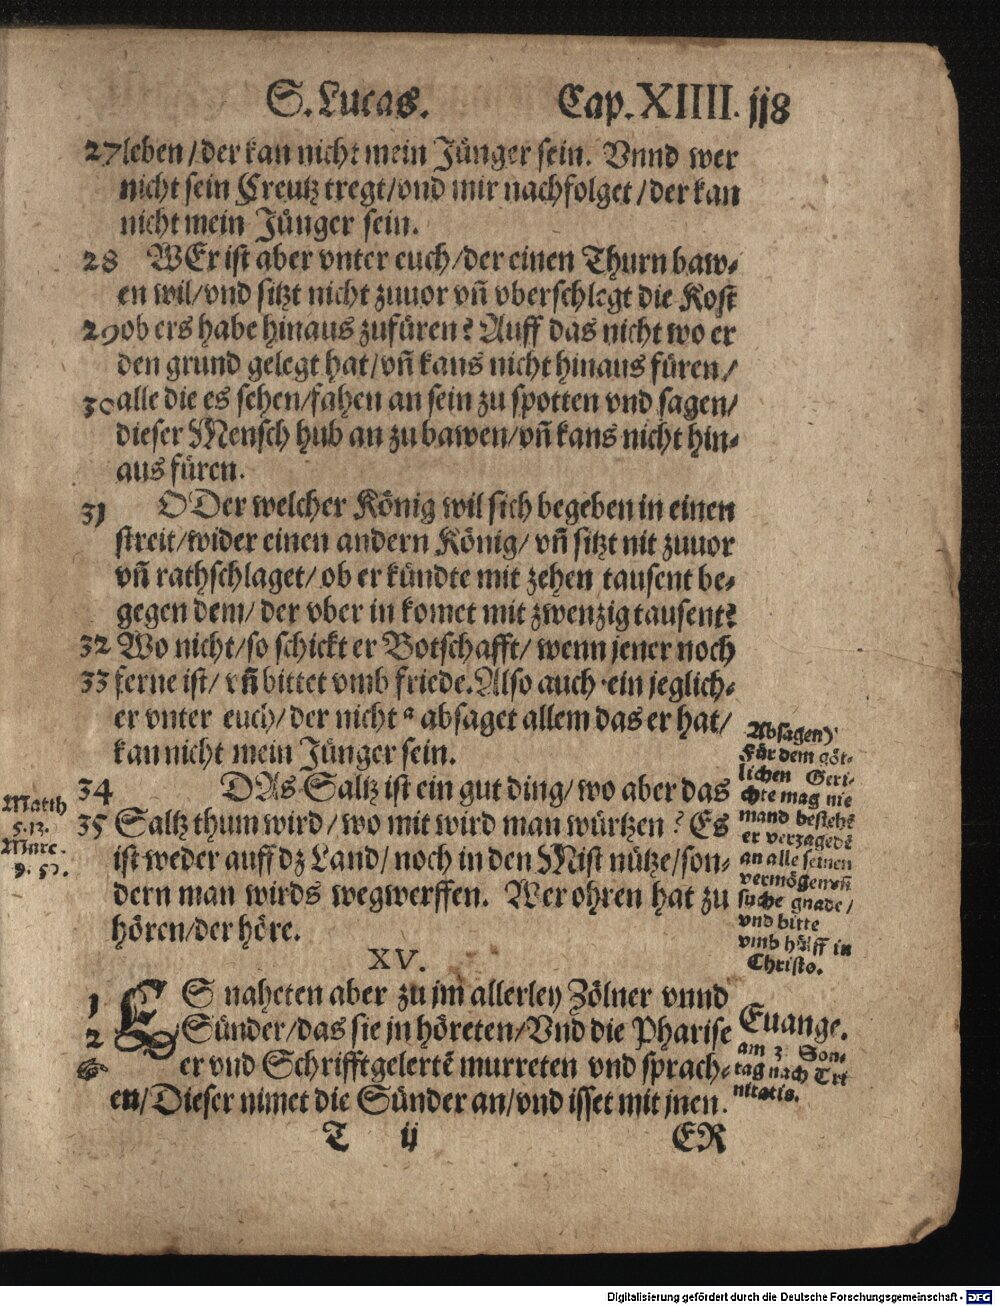 S. Lucas. Cap. XIIII. 118
27 leben/der kan nicht mein Jünger sein. Vnnd wer
nicht sein Creutz tregt/vnd mir nachfolget/der kan
nicht mein Jünger sein.
28 WEr ist aber vnter euch/der einen Thurn baw-
en wil/vnd sitzt nicht zuuor vñ vberschlegt die Kost
29 ob ers habe hinaus zufüren? Auff das nicht wo er
den grund gelegt hat/vñ kans nicht hinaus füren/
30 alle die es sehen/fahen an sein zu spotten vnd sagen/
dieser Mensch hub an zu bawen/vñ kans nicht hin-
aus füren.
31 ODer welcher König wil sich begeben in einen
streit/wider einen andern König/vñ sitzt nit zuuor
vñ rathschlaget/ob er kündte mit zehen tausent be-
gegen dem/der vber in komet mit zwenzig tausent?
32 Wo nicht/so schickt er Botschafft/wenn jener noch
33 ferne ist/vñ bittet vmb friede. Also auch ein jeglich-
er vnter euch/der nicht a absaget allem das er hat/
kan nicht mein Jünger sein.
34 DAs Saltz ist ein gut ding/wo aber das
35 Saltz thum wird/wo mit wird man würtzen? Es
ist weder auff dz Land/noch in den Mist nütze/son-
dern man wirds wegwerffen. Wer ohren hat zu
hören/der höre.
Matth
5.13.
Marc.
9.50.
Absagen)
Für dem göt-
lichen Geri-
chte mag nie
mand bestehē
er verzagedē
an alle seinen
vermögen vñ
suche gnade/
vnd bitte
vmb hülff in
Christo.
XV.
1 ES naheten aber zu jm allerley Zölner vnnd
2 Sünder/das sie jn höreten/Vnd die Pharise
er vnd Schrifftgelertē murreten vnd sprach-
en/Dieser nimet die Sünder an/vnd isset mit jnen.
Euange.
am 3 Son-
tag nach Tri
nitatis.
T ij ER
Digitalisierung gefördert durch die Deutsche Forschungsgemeinschaft - DFG